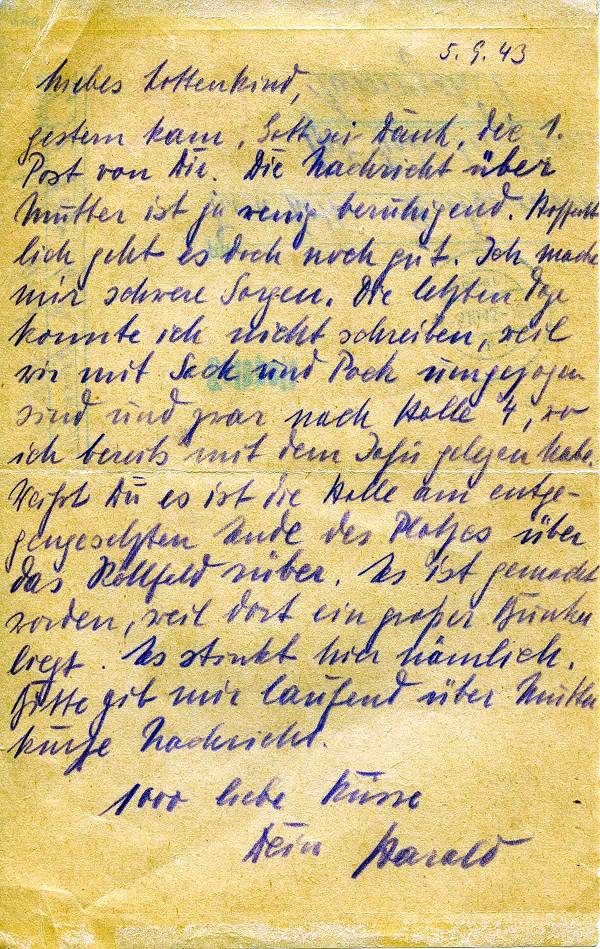 5.9.43
Liebes Lottenkind,
gestern kam, Gott sei Dank, die 1.
Post von Dir. Die Nachricht über
Mutter ist ja wenig beruhigend. Hoffent
lich geht es doch noch gut. Ich mache
mir schwere Sorgen. Die letzten Tage
konnte ich nicht schreiben, weil
wir mit Sack und Pack umgezogen
sind und zwar nach Halle 4, wo
ich bereits mit dem gelegen habe.
Weißt Du es ist die Halle am entge-
gengesetzten Ende des Platzes über
das Rollfeld rüber. Es ist gemacht
worden, weil dort ein großer Bunker
liegt. Es stinkt hier nämlich.
Bitte gib mir laufend über Mutter
kurze Nachricht.
1000 liebe Küsse
Dein Harald